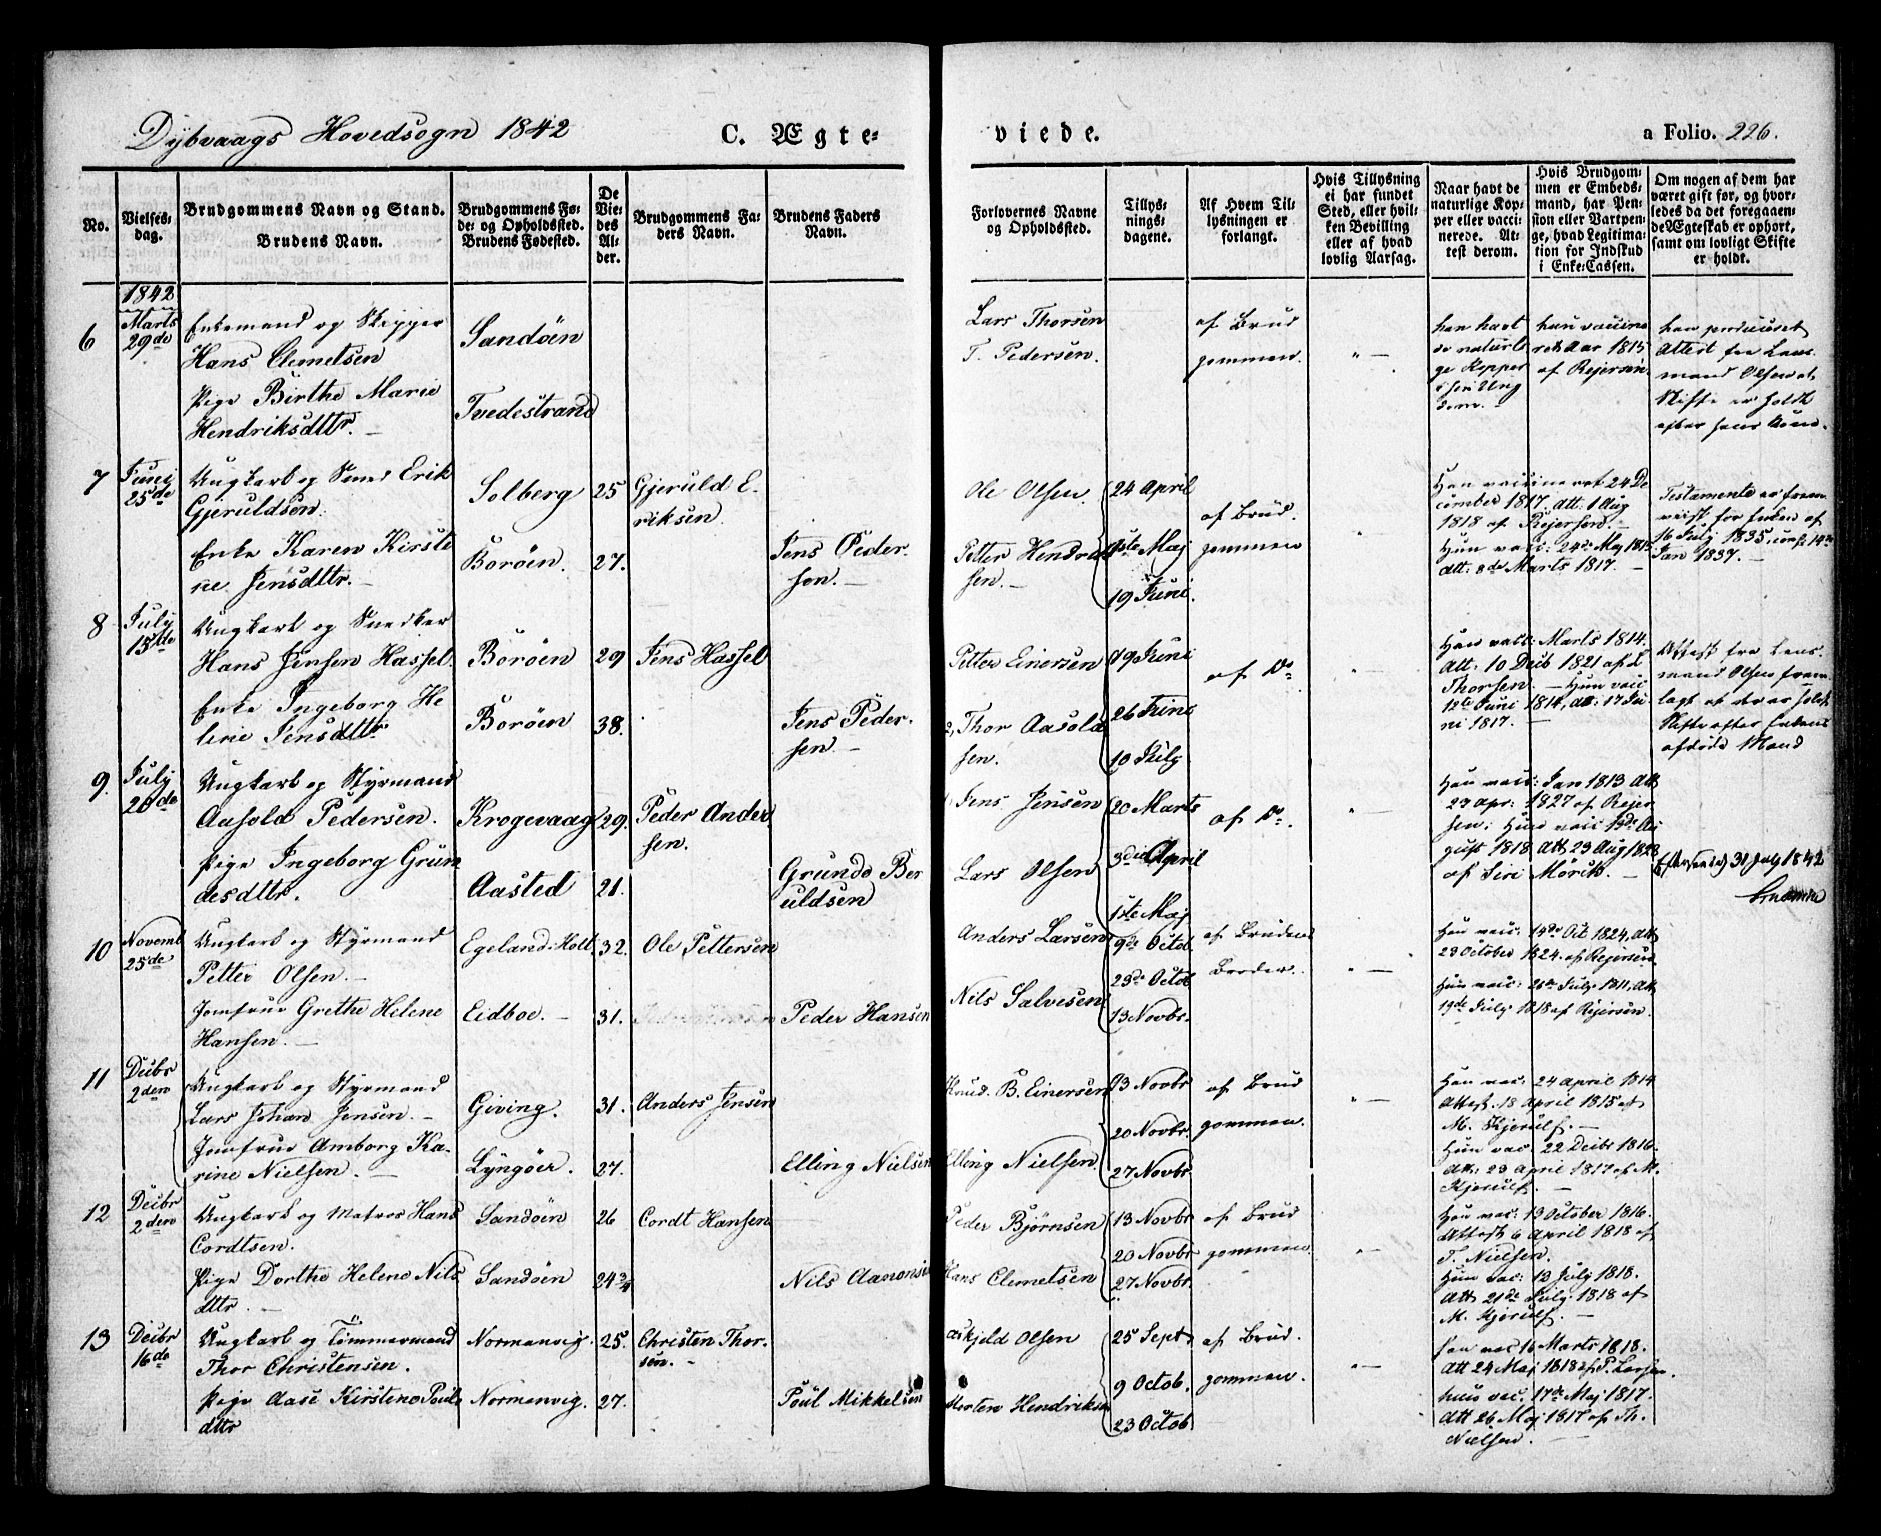 Dybvaags Hovedsogn 1842
C. Ægte-
viede.
a Folio. 226.
No.
Vielses-
dag.
Brudgommens Navn og Stand.
Brudens Navn.
Brudgommens Fø-
de- og Opholdsted.
Brudens Fødested.
De
Vie-
des
Al-
der.
Brudgommens Fa-
ders Navn.
Brudens Faders
Navn.
Forlovernes Navne
og Opholdsted.
Tillys-
nings-
dagene.
Af Hvem Til-
lysningen er
forlangt.
Hvis Tillysning
ei har fundet
Sted, eller hvil-
ken Bevilling
eller af hvad
lovlig Aarsag.
Naar havt de
naturlige Kop-
per eller vacci-
nerede. At-
test derom.
Hvis Brudgom-
men er Embeds-
mand, har Pen-
sion eller Vartpen-
ge, hvad Legitima-
tion for Indskud
i Enke-Cassen.
Om nogen af dem har
været gift før, og hvor-
ledes da det foregaaen-
de Ægteskab er ophørt,
samt om lovligt Skifte
er holdt.
1842
6
Marts
29de
Enkemand og Skipper
Hans Clemetsen
Pige Birthe Marie
Hendriksdttr. —
Sandöen
Tvedestrand
Lars Thorsen
T. Pedersen.
af Brud
gommen.
" —
han havt
de naturli
ge Kopper
i sin Ung
dom. -
hun vaccine
ret Aar 1815
af Rejersen.
han produceret
Attest fra Lens
mand Olsen at
Skifte er holdt
efter hans Kone.
7
Junij
25de
Ungkarl og Smed Erik
Gjeruldsen.
Enke Karen Kirste
ne Jensdttr. —
Solberg
Boröen.
25
27.
Gjeruld E-
riksen.
Jens Peder-
sen. —
Ole Olsen.
Petter Hendrik
sen. —
24 April
1ste Maj
19 Juni.
af Brud.
gommen
"
Han vaccineret 24 De
cember 1817. Att. 1 Aug
1818 af Rejersen. —
Hun vac: 24de Maj 1815
Att: 8de Marts 1817. —
Testamente er frem
viist for Enken af
16 July 1835, conf: 14de
Jan 1837. —
8
July
15de
Ungkarl og Snedker
Hans Jensen Hassel.
Enke Ingeborg He
lene Jensdttr
Boröen
Boröen
29
38.
Jens Hassel
Jens Peder-
sen. —
Petter Einersen
2, Thor Aasold
sen.
19 Juni
26 Juni
10 July
af Do
"
Han vacc: Marts 1814.
Att. 10 Decb 1821 af L
Thorsen. — Hun vacc
12te Juni 1814, att: 17 Ju
ni 1817. —
Attest fra Lens-
mand Olsen frem
lagt at der er holdt
Skifte efter Enkens
afdöde Mand
9.
July
26de
Ungkarl og Styrmand
Aasold Pedersen.
Pige Ingeborg Grun
desdttr.
Krogevaag
Aasted
29.
21.
Peder Ander
sen.
Grunde Ber
uldsen
Jens Jensen
Lars Olsen
20 Marts
3die April
1ste Maj
af Do.
" —
Han vacc: Jan 1813 Att
23 apr: 1827 af Rejer
sen; Hun vacc 13de Au
gust 1818. Att 23 Aug 1823
af Mörch. —
31 July 1842
10
Novemb
25de
Ungkarl og Styrmand
Petter Olsen. —
Jomfrue Grethe Helene
Hansen. —
Egeland: Holt.
Eidboe. —
32.
31.
Ole Pettersen
Peder Hansen
Anders Larsen
Nils Salvesen
9de Octob
23de Octob
13 Novbr.
af Brudens
Broder.
" —
Han vacc: 14de Oct 1824, Att
23 October 1824. af Rejersen
Hun vacc: 26de July 1811, Att
19de July 1818 af Rejersen.
11
Decbr
2den
Ungkarl og Styrmand
Lars Johan Jensen. —
Jomfrue Amborg Ka-
rine Nielsen. —
Giving.
Lyngöer.
31.
27.
Anders Jensen
Elling Nielsen
Knud. B. Einersen
Elling Nielsen.
13 Novbr
20 Novbr.
27 Novbr
af Brud
gommen.
" —
Han vac: 24 April 1814
Attest. 18 April 1815 af
M. Kjerulf. —
Hun vac: 22 Decbr 1816.
Att: 23 April 1817 af M.
Kjerulf. —
12
Decbr
2den
Ungkarl og Matros Hans
Cordtsen.
Pige Dorthe Helene Nils
dttr. —
Sandöen
Sandöen
26
24 3/4
Cordt Hansen
Nils Aanonsen
Peder Björnsen
Hans Clemetsen
13 Novbr
20 Novbr
27 Novbr.
af Brud
gommen.
" —
Han vac: 13 October 1816.
Attest 6 April 1818 af
T. Nielsen.
Hun vac: 12 July 1818.
Att 21de July 1818 af
M. Kjerulf. —
13
Decbr
16de
Ungkarl og Tömmermand
Thor Christensen.
Pige Aase Kirstene Pouls
dttr
Normanvig.
Normanvig.
25.
27.
Christen Thor-
sen. —
Poul Mikkelsen
Askjeld Olsen
Morten Hendriksen
25 Sept
9 Octob.
23 Octob
af Brud.
gommen.
" —
han vac 16 Marts 1818.
Att 24 Maj 1818 af P. Larsen.
hun vac: 17de Maj 1817.
Att 26 Maj 1817 af Th.
Nielsen. —